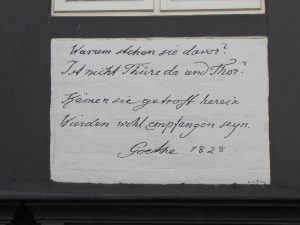 Warum stehen sie davor?
Ist nicht Thüre da und Thor?
Kämen sie getrost herein
Würden wohl empfangen seyn.
Goethe 1828